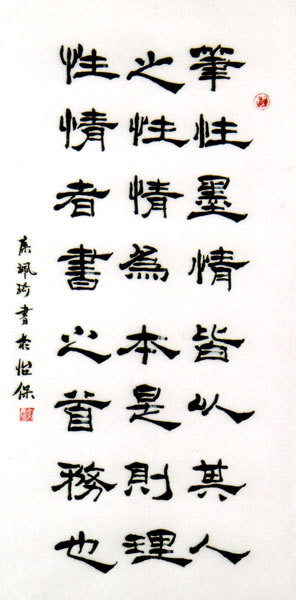 筆性墨情皆以其人
之性情為本是則理
性情者書之首務也
珮書於怡保